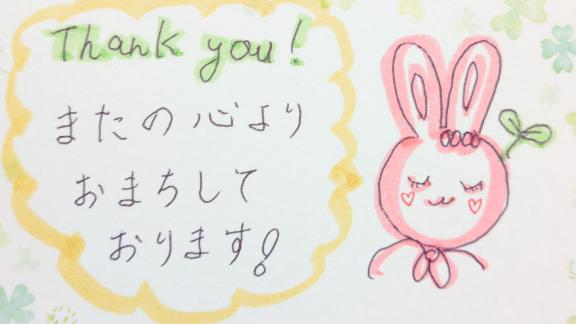 Thank you!
またの心より
おまちして
おります!